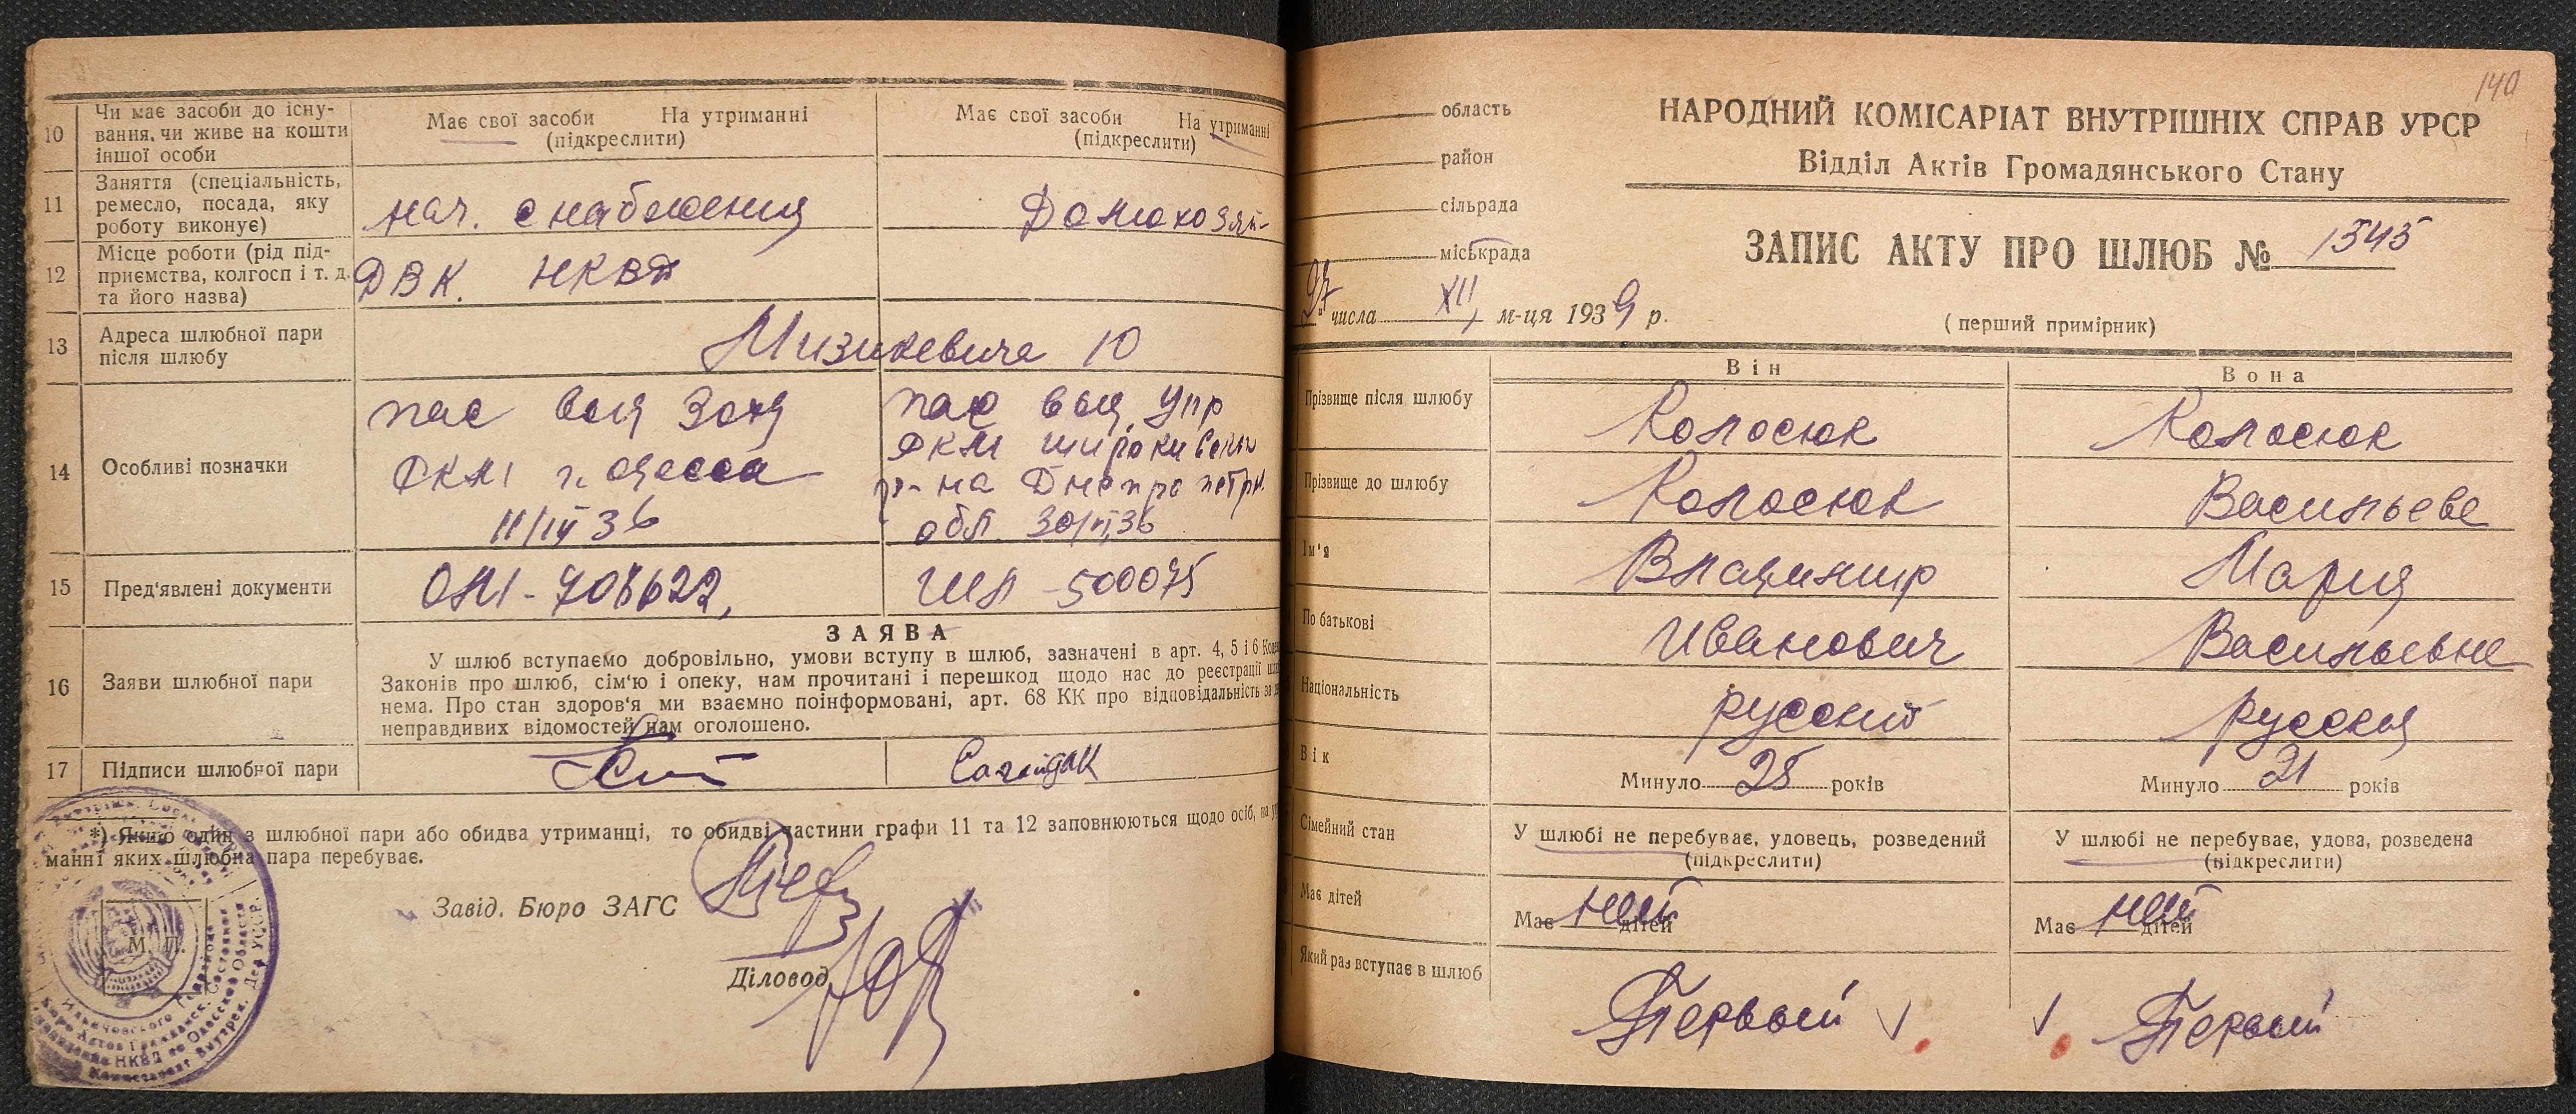 10 Чи має засоби до існу-
вання, чи живе на кошти
іншої особи
Має свої засоби На утриманні
(підкреслити)
Має свої засоби На утриманні
(підкреслити)
11 Заняття (спеціальність,
ремесло, посада, яку
роботу виконує)
нач. снабжения
Домохозяй-
12 Місце роботи (рід під-
приємства, колгосп і т. д.
та його назва)
ДВК. НКВД
13 Адреса шлюбної пари
після шлюбу
Мизикевича 10
14 Особливі позначки
пас выд
РКМ г. Одесса
11/IV 36
пас выд Упр
РКМ Широкивск
р-на Днепропетр.
обл. 30/VI 36
15 Пред'явлені документи
ОМ - 708622,
ШП - 500075
16 Заяви шлюбної пари
ЗАЯВА
У шлюб вступаємо добровільно, умови вступу в шлюб, зазначені в арт. 4, 5 і 6
Законів про шлюб, сім'ю і опеку, нам прочитані і перешкод щодо нас до реєстрації
нема. Про стан здоров'я ми взаємно поінформовані, арт. 68 КК про відповідальність за
неправдивих відомостей нам оголошено.
17 Підписи шлюбної пари
Сагайдак
*) Якщо один з шлюбної пари або обидва утриманці, то обидві частини графи 11 та 12 заповнюються щодо осіб, на у
манні яких шлюбна пара перебуває.
Завід. Бюро ЗАГС
Діловод
М. П.
140
область
район
сільрада
міськрада
НАРОДНИЙ КОМІСАРІАТ ВНУТРІШНІХ СПРАВ УРСР
Відділ Актів Громадянського Стану
ЗАПИС АКТУ ПРО ШЛЮБ № 1545
27 числа XII, м-ця 1939 р.
(перший примірник)
Він
Вона
Прізвище після шлюбу
Колосюк
Колосюк
Прізвище до шлюбу
Колосюк
Васильева
Ім'я
Владимир
Мария
По батькові
Иванович
Васильевна
Національність
русский
русская
Вік
Минуло 25 років
Минуло 21 років
Сімейний стан
У шлюбі не перебуває, удовець, розведений
(підкреслити)
У шлюбі не перебуває, удова, розведена
(підкреслити)
Має дітей
Має нет дітей
Має нет дітей
Який раз вступає в шлюб
Первый
Первый